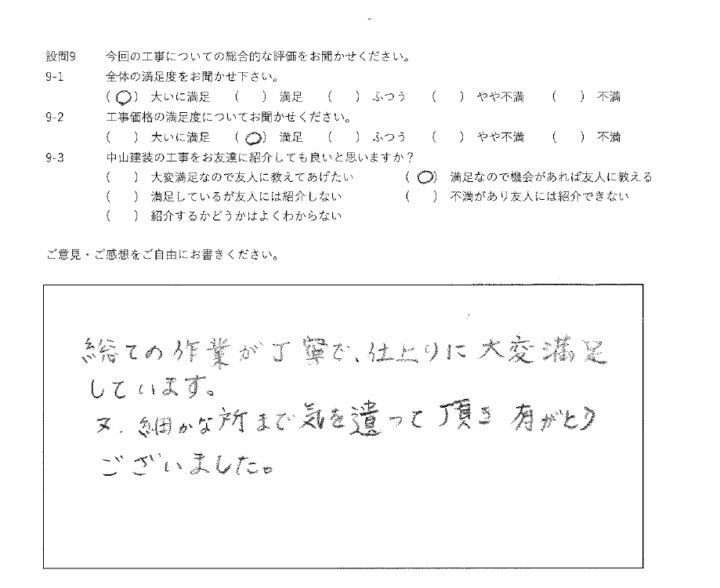 設問9 今回の工事についての総合的な評価をお聞かせください。
9-1 全体の満足度をお聞かせ下さい。
(○) 大いに満足 ( ) 満足 ( ) ふつう ( ) やや不満 ( ) 不満
9-2 工事価格の満足度についてお聞かせください。
( ) 大いに満足 (○) 満足 ( ) ふつう ( ) やや不満 ( ) 不満
9-3 中山建装の工事をお友達に紹介しても良いと思いますか?
( ) 大変満足なので友人に教えてあげたい (○) 満足なので機会があれば友人に教える
( ) 満足しているが友人には紹介しない ( ) 不満があり友人には紹介できない
( ) 紹介するかどうかはよくわからない
ご意見・ご感想をご自由にお書きください。
総ての作業が丁寧で、仕上りに大変満足
しています。
又、細かな所まで気を遣って頂き有がとう
ございました。